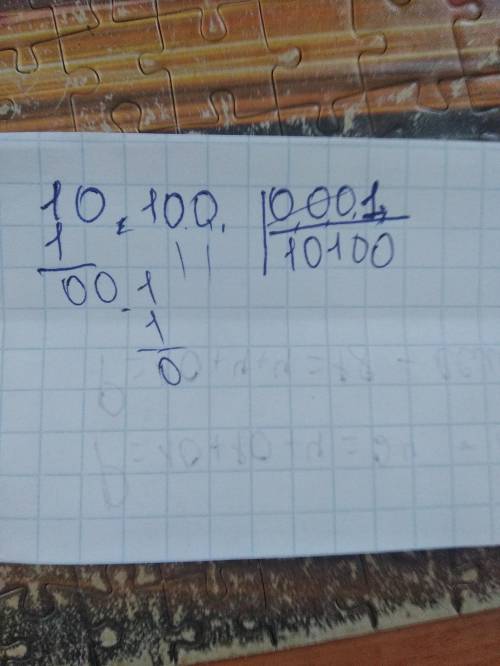 10,100, 0,001,
1 10100
00 1
1
0